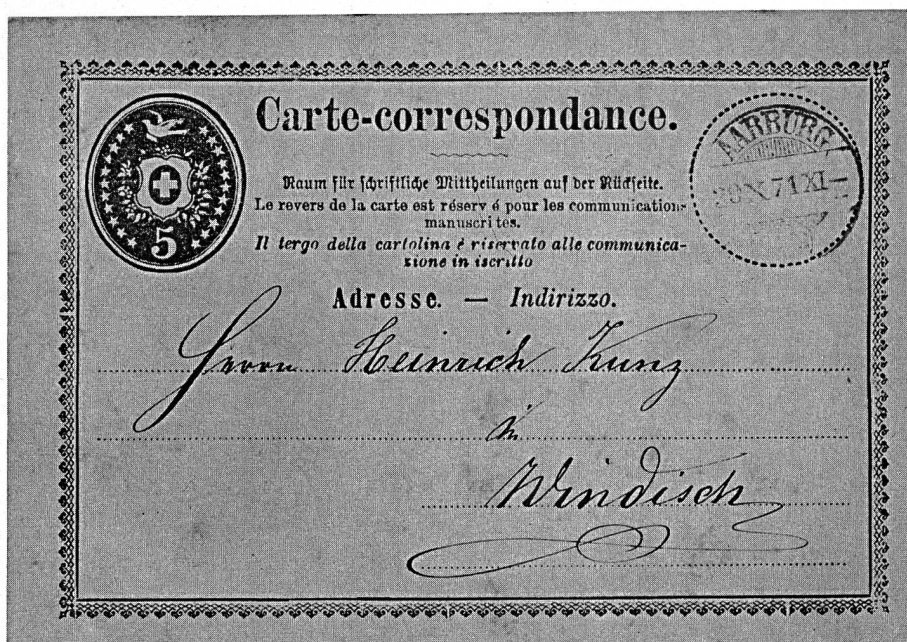 Carte-correspondance.
Raum für schriftliche Mittheilungen auf der Rückseite.
Le revers de la carte est réserv é pour les communications
manuscrites.
Il tergo della cartolina è riservato alle communica-
zione in iscritto
Adresse. — Indirizzo.
5
AARBURG
20 X 71 XI–
Herrn Heinrich Kunz
in
Windisch